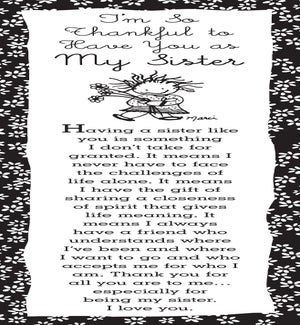 I'm So
Thankful to
Have You as
My Sister
Marci
Having a sister like
you is something
I don't take for
granted. It means I
never have to face
the challenges of
life alone. It means
I have the gift of
sharing a closeness
of spirit that gives
life meaning. It
means I always
have a friend who
understands where
I've been and where
I want to go and who
accepts me for who I
am. Thank you for
all you are to me...
especially for
being my sister.
I love you.